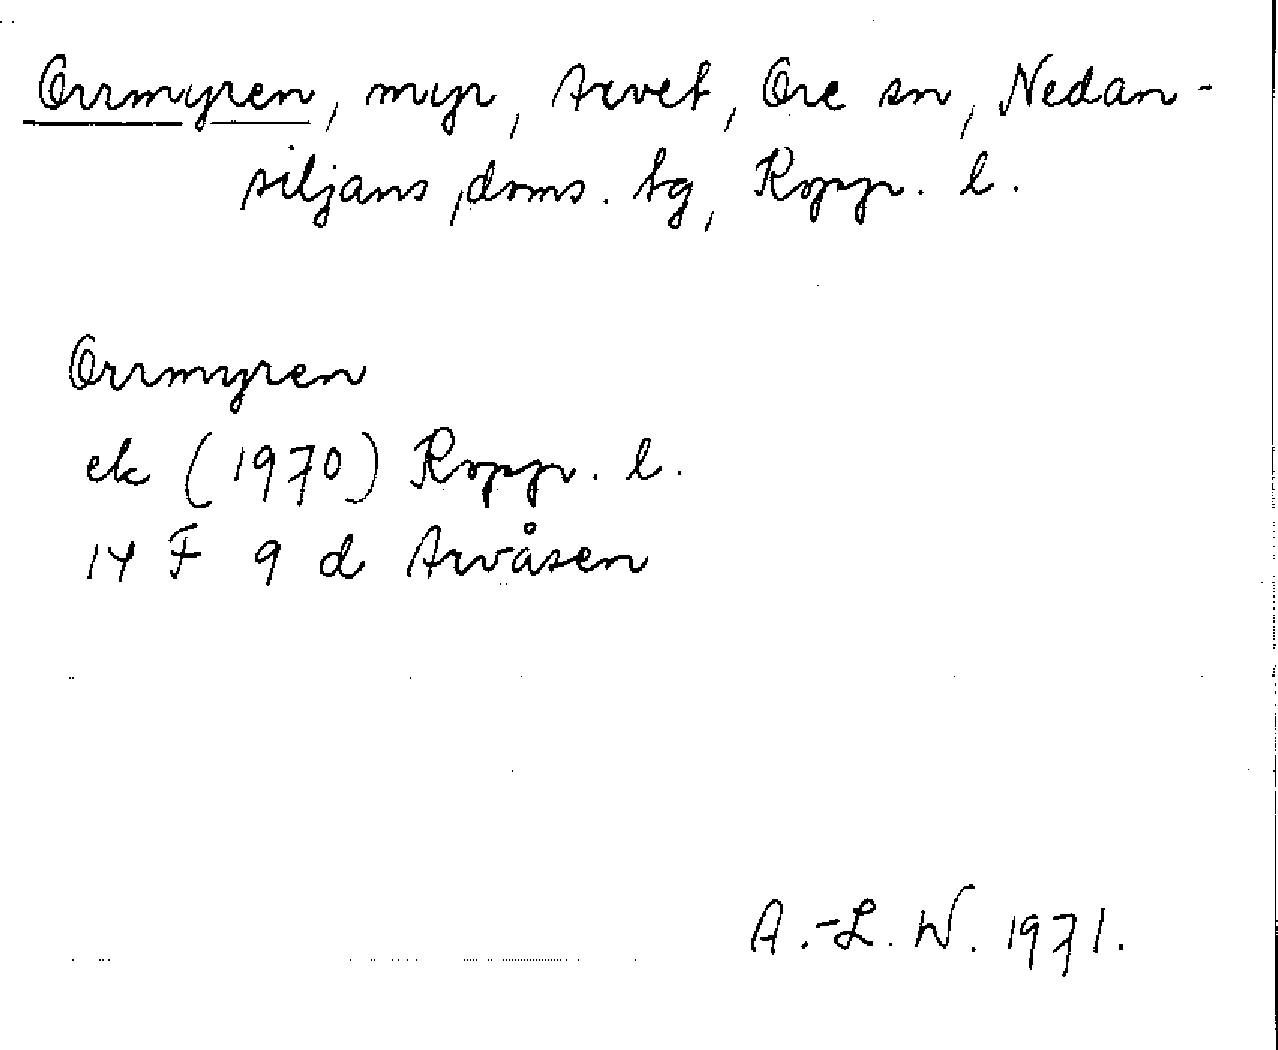 Orrmyren, myr, Arvet, Ore sn, Nedan-
siljans, doms. tg, Kopp. l.
Orrmyren
ek (1970) Kopp. l.
14 F 9 d Arvåsen
A.-L. W. 1971.